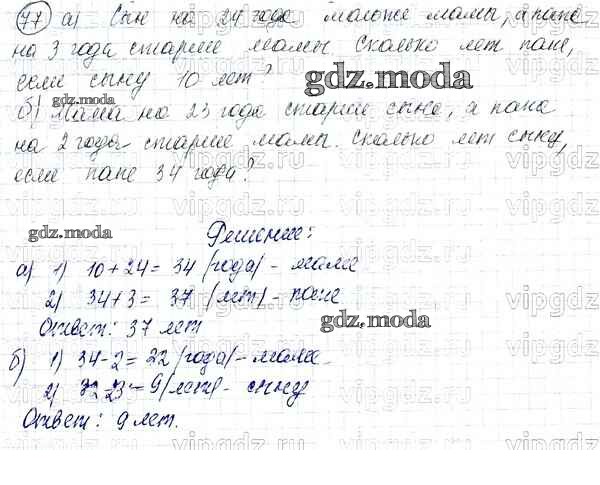 77 а) Сын на 24 года моложе мамы, а папа
на 3 года старше мамы. Сколько лет папе,
если сыну 10 лет?
gdz.moda
gdz.moda
б) Мама на 23 года старше сына, а папа
на 2 года старше мамы. Сколько лет сыну,
если папе 34 года?
vipgdz.ru
gdz.moda
Решение:
а) 1) 10+24= 34 (года) - маме
2) 34+3= 37 (лет) - папе
Ответ: 37 лет
gdz.moda
б) 1) 34-2= 32 (года) - маме
2) 32-23= 9 (лет) - сыну
Ответ: 9 лет.